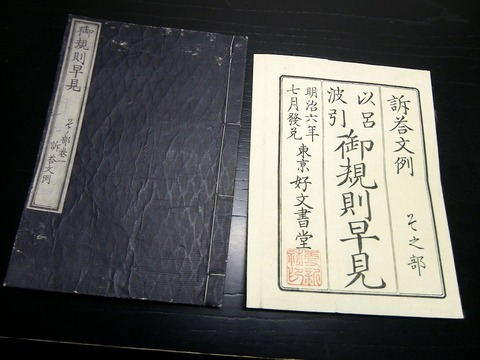 御規則早見
そ之部 巻一
訴答文例
訴答文例
そ之部
以呂
波引
御規則早見
明治六年
七月發兌
東京 好文書堂